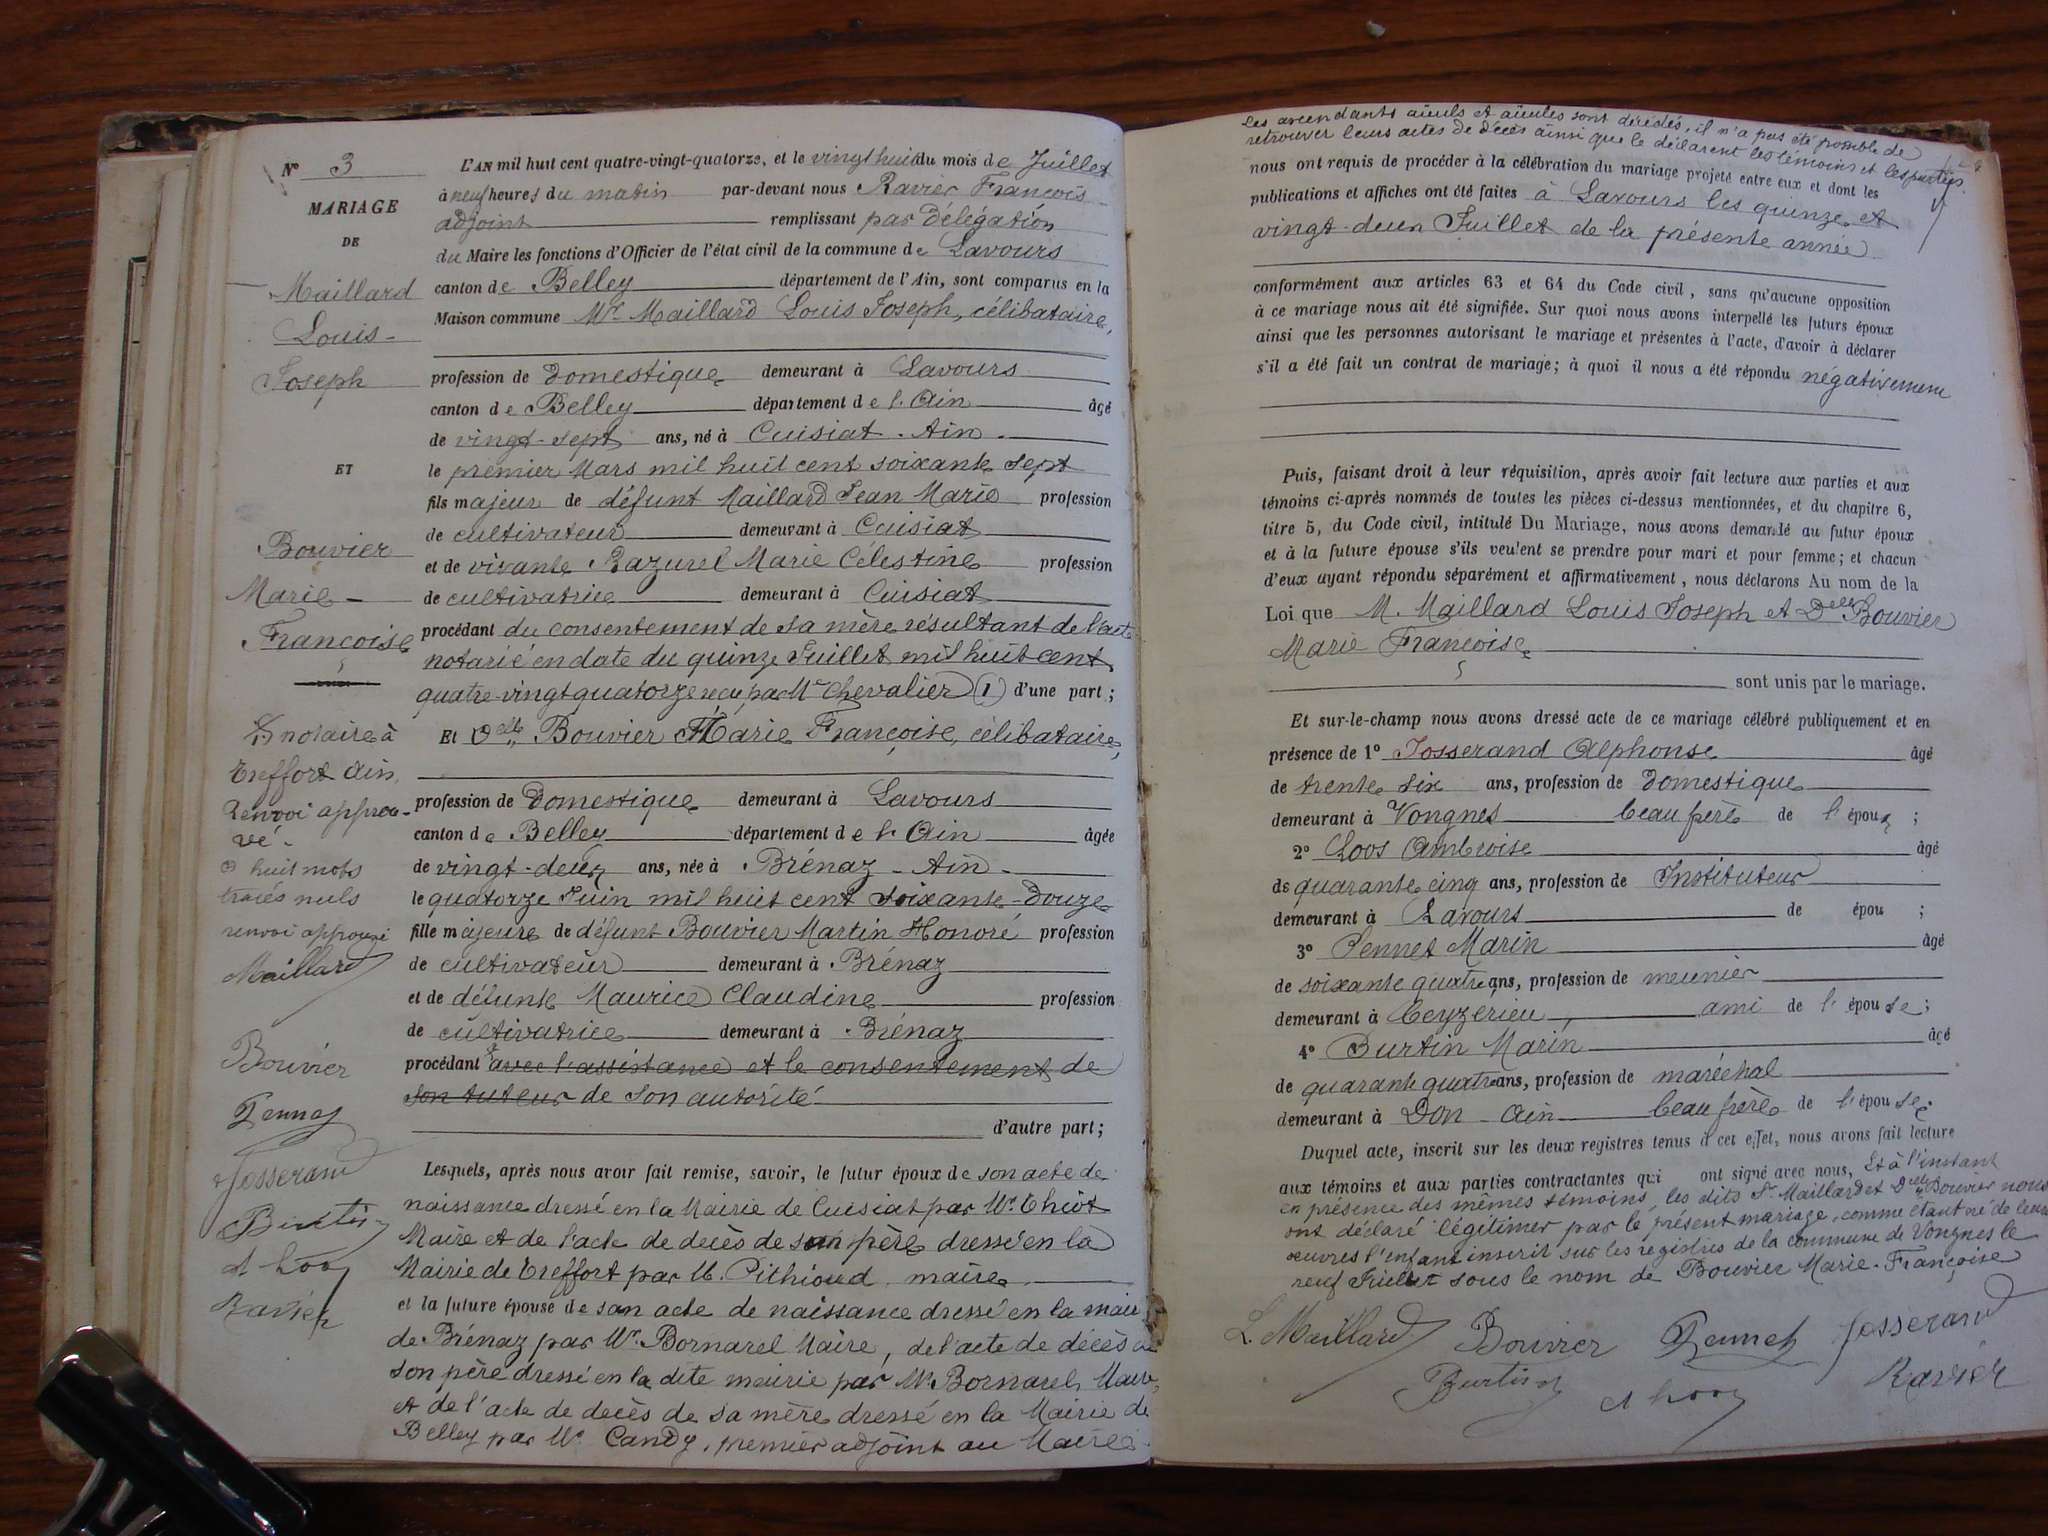 N° 3
MARIAGE
DE
Maillard
Louis
Joseph
ET
Bouvier
Marie
Françoise
(1) notaire à
Treffort Ain.
Renvoi approu-
vé.
huit mots
tracés nuls
renvoi approuvé
Maillard
Bouvier
Pennet
Josserand
Burtin
A Loos
Ravier
L'AN mil huit cent quatre-vingt-quatorze, et le vingt huit du mois de Juillet
à neuf heures du matin par-devant nous Ravier François
adjoint remplissant par délégation
du Maire les fonctions d'Officier de l'état civil de la commune de Lavours
canton de Belley département de l'Ain, sont comparus en la
Maison commune Mr Maillard Louis Joseph, célibataire,
profession de domestique demeurant à Lavours
canton de Belley département de l'Ain âgé
de vingt-sept ans, né à Cuisiat - Ain -
le premier Mars mil huit cent soixante sept
fils majeur de défunt Maillard Jean Marie profession
de cultivateur demeurant à Cuisiat
et de vivante Razurel Marie Célestine profession
de cultivatrice demeurant à Cuisiat
procédant du consentement de sa mère résultant de l'acte
notarié en date du quinze Juillet mil huit cent
quatre-vingt quatorze reçu par Me Chevalier (1) d'une part ;
Et Delle Bouvier Marie Françoise, célibataire,
profession de domestique demeurant à Lavours
canton de Belley département de l'Ain âgée
de vingt-deux ans, née à Brénaz - Ain -
le quatorze Juin mil huit cent soixante-douze
fille majeure de défunt Bouvier Martin Honoré profession
de cultivateur demeurant à Brénaz
et de défunte Maurice Claudine profession
de cultivatrice demeurant à Brénaz
procédant avec l'assistance et le consentement de
son tuteur de son autorité
d'autre part ;
Lesquels, après nous avoir fait remise, savoir, le futur époux de son acte de
naissance dressé en la Mairie de Cuisiat par Mr Thiot
Maire et de l'acte de décès de son père dressé en la
Mairie de Treffort par M. Pithioud maire
et la future épouse de son acte de naissance dressé en la mairie
de Brénaz par Mr Bornarel Maire, de l'acte de décès de
son père dressé en la dite mairie par Mr Bornarel, Maire,
et de l'acte de décès de sa mère dressé en la Mairie de
Belley par Mr Candy, premier adjoint au Maire
Les ascendants aïeuls et aïeules sont décédés, il n'a pas été possible de
retrouver leurs actes de décès ainsi que le déclarent les témoins et les parties.
nous ont requis de procéder à la célébration du mariage projeté entre eux et dont les
publications et affiches ont été faites à Lavours les quinze et
vingt-deux Juillet de la présente année
conformément aux articles 63 et 64 du Code civil, sans qu'aucune opposition
à ce mariage nous ait été signifiée. Sur quoi nous avons interpellé les futurs époux
ainsi que les personnes autorisant le mariage et présentes à l'acte, d'avoir à déclarer
s'il a été fait un contrat de mariage ; à quoi il nous a été répondu négativement
Puis, faisant droit à leur réquisition, après avoir fait lecture aux parties et aux
témoins ci-après nommés de toutes les pièces ci-dessus mentionnées, et du chapitre 6,
titre 5, du Code civil, intitulé Du Mariage, nous avons demandé au futur époux
et à la future épouse s'ils veulent se prendre pour mari et pour femme ; et chacun
d'eux ayant répondu séparément et affirmativement, nous déclarons Au nom de la
Loi que M. Maillard Louis Joseph et Delle Bouvier
Marie Françoise
sont unis par le mariage.
Et sur-le-champ nous avons dressé acte de ce mariage célébré publiquement et en
présence de 1° Josserand Alphonse âgé
de trente six ans, profession de domestique
demeurant à Vongnes beau frère de l'époux ;
2° Loos Ambroise âgé
de quarante cinq ans, profession de Instituteur
demeurant à Lavours de épou ;
3° Pennet Marin âgé
de soixante quatre ans, profession de meunier
demeurant à Ceyzérieu ami de l'épouse ;
4° Burtin Marin âgé
de quarante quatre ans, profession de maréchal
demeurant à Don - Ain beau frère de l'épouse.
Duquel acte, inscrit sur les deux registres tenus à cet effet, nous avons fait lecture
aux témoins et aux parties contractantes qui ont signé avec nous, Et à l'instant
en présence des mêmes témoins, les dits Sr Maillard et Delle Bouvier nous
ont déclaré légitimer par le présent mariage, comme étant né de leurs
œuvres l'enfant inscrit sur les registres de la commune de Vongnes le
neuf Juillet sous le nom de Bouvier Marie-Françoise
L. Maillard Bouvier Pennet Josserand
Burtin A Loos Ravier